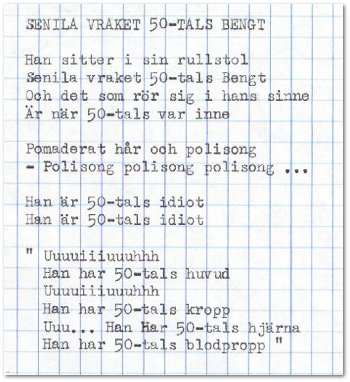 SENILA VRAKET 50-TALS BENGT
Han sitter i sin rullstol
Senila vraket 50-tals Bengt
Och det som rör sig i hans sinne
Är när 50-tals var inne
Pomaderat hår och polisong
- Polisong polisong polisong ...
Han är 50-tals idiot
Han är 50-tals idiot
" Uuuuiiiuuuhhh
Han har 50-tals huvud
Uuuuiiiuuuhhh
Han har 50-tals kropp
Uuu... Han Har 50-tals hjärna
Han har 50-tals blodpropp "